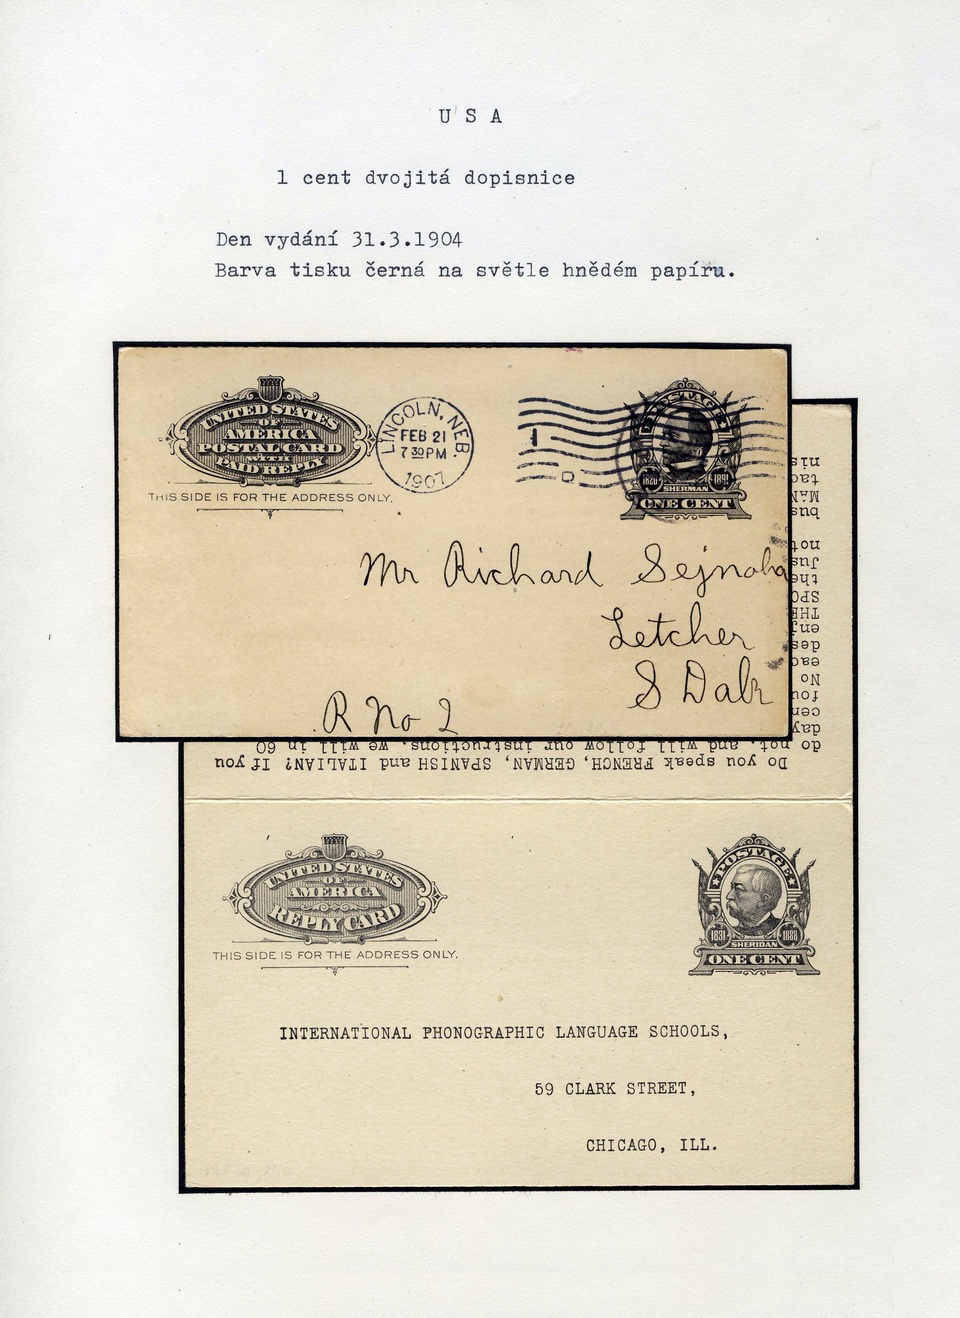 U S A
1 cent dvojitá dopisnice
Den vydání 31.3.1904
Barva tisku černá na světle hnědém papíru.
UNITED STATES
OF
AMERICA
POSTAL CARD
WITH
PAID REPLY
THIS SIDE IS FOR THE ADDRESS ONLY.
LINCOLN, NEB.
FEB 21
7 30 PM
1907
1
POSTAGE
1820 1891
SHERMAN
ONE CENT
Mr Richard Sejnoha
Letcher
S Dak
R No 2
Do you speak FRENCH, GERMAN, SPANISH and ITALIAN? If you
do not, and will follow our instructions, we will in 60
day
cen
fou
No
eac
des
enj
THE
SPO
the
Jus
not
bus
MAN
tac
his
UNITED STATES
OF
AMERICA
REPLY CARD
THIS SIDE IS FOR THE ADDRESS ONLY.
POSTAGE
1831 1888
SHERIDAN
ONE CENT
INTERNATIONAL PHONOGRAPHIC LANGUAGE SCHOOLS,
59 CLARK STREET,
CHICAGO, ILL.